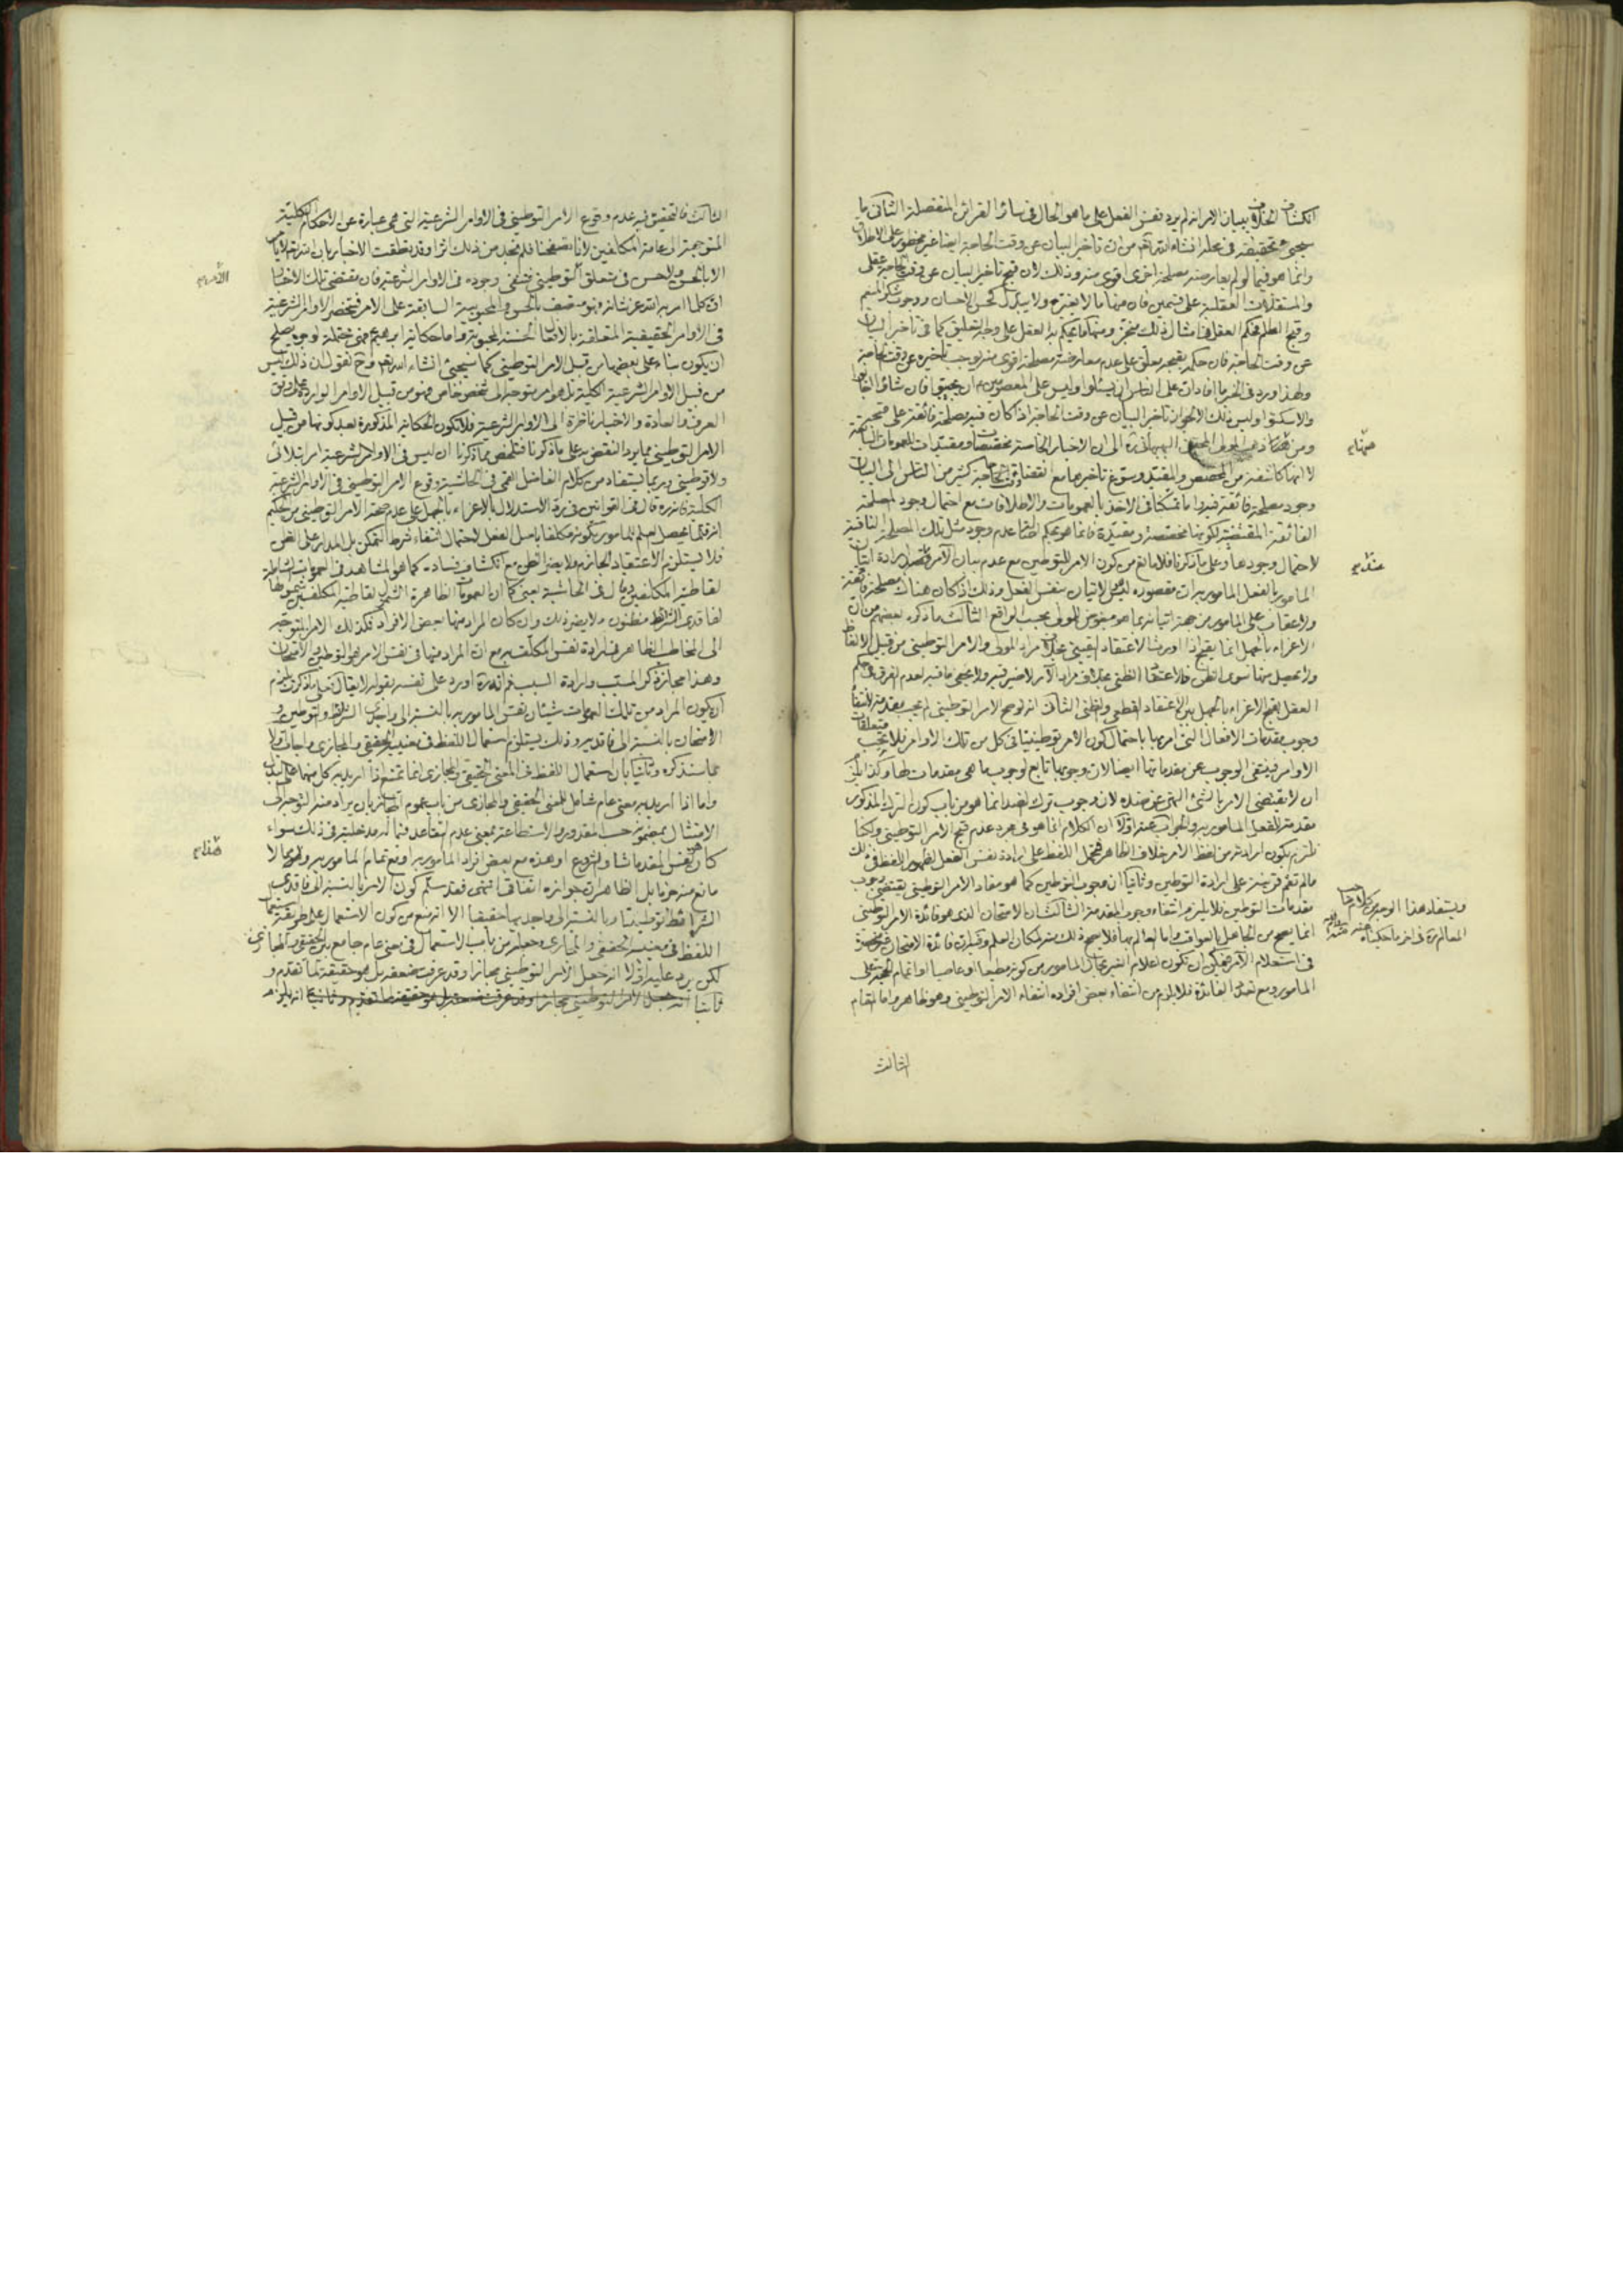 انكشاف الخلاف ببيان الامر انه لم يرد نفس الفعل على ما هو الحال فى سائر القرائن المنفصلة الثانى ما
سيجئ تحقيقه فى محله انشاء الله تع من ان تاخير البيان عن وقت الحاجة ايضا غير محظور على الاطلاق
وانما هو فيما لو لم يعارضه مصلحة اخرى اقوى منه وذلك لان قبح تاخير البيان عن وقت الحاجة عقلى
والمستقلات العقلية على قسمين فان منها ما لا يتغير ولا يتبدل كحسن الاحسان ووجوب شكر المنعم
وقبح الظلم فحكم العقل فى امثال ذلك منجز ومنها ما يحكم به العقل على وجه التعليق كما فى تاخير البيان
عن وقت الحاجة فان حكمه بقبحه معلق على عدم معارضة مصلحة اقوى منه يوجب تاخيره عن وقت الحاجة
ولهذا ورد فى الخبر ما افاد ان على الناس ان يسئلوا وليس على المعصومين م ان يجيبوا فان شاؤا اجابوا
والا سكتوا وليس ذلك الا لجواز تاخير البيان عن وقت الحاجة اذا كان فيه مصلحة فائقة على قبحه
ومن هنا ذهب المولى المحقق البهبهانى ره الى ان الاخبار الخاصة مخصصات ومقيدات للعمومات السابقة
لا انها كاشفة عن المخصص والمقيد وسوغ تاخيرها مع انقضاء وقت حاجة كثير من الناس الى البيان
وجود مصلحة فائقة فيه واما تمسكنا فى الاخذ بالعمومات والاطلاقات مع احتمال وجود المصلحة
الفائقة المقتضية لكونها مخصصة ومقيدة فانما هو بحكم اصالة عدم وجود مثل تلك المصلحة النافية
لاحتمال وجودها وعلى ما ذكرنا فلا مانع من كون الامر للتوطين مع عدم بيان الآمر وقصد ارادة اتيان
المامور بالفعل المامور به ان مقصوده ليس الاتيان بنفس الفعل وذلك اذا كان هناك مصلحة فائقة
ولا عقاب على المامور من جهة اتيانه بما هو مبغوض للمولى بحسب الواقع الثالث ما ذكره بعضهم من ان
الاغراء بالجهل انما يقبح اذا اورث الاعتقاد اليقينى بخلاف مراد المولى والامر التوطينى من قبيل الالفاظ
ولا يحصل منها سوى الظن فالاعتقاد الظنى بخلاف مراد الآمر لا ضير فيه ولا يخفى ما فيه لعدم الفرق فى حكم
العقل بقبح الاغراء بالجهل بين الاعتقاد القطعى والظنى الثانى انه لو صح الامر التوطينى لم يجب مقدمة لانتفاء
وجوب مقدمات الافعال التى امر بها باحتمال كون الامر توطينيا فى كل من تلك الاوامر فلا يجب متعلقات
الاوامر فينتفى الوجوب عن مقدماتها ايضا لان وجوبها تابع لوجوب ما هى مقدمات لها وكذا يلزم
ان لا يقتضى الامر بالشئ النهى عن ضده لان وجوب ترك الضد انما هو من باب كون الترك المذكور
مقدمة للفعل المامور به والجواب عنه اولا ان الكلام انما هو فى مجرد عدم قبح الامر التوطينى ولكنا
نلتزم بكون ارادته من لفظ الامر خلاف الظاهر فيحمل اللفظ على ارادة نفس الفعل لظهور اللفظ فى ذلك
ما لم تقم قرينة على ارادة التوطين وثانيا ان وجوب التوطين كما هو مفاد الامر التوطينى يقتضى وجوب
مقدمات التوطين فلا يلزم انتفاء وجوب المقدمة الثالث ان الامتحان الذى هو فائدة الامر التوطينى
انما يصح من الجاهل بالعواقب واما العالم بها فلا يصح ذلك منه لمكان العلم وفيه ان فائدة الامتحان غير منحصرة
فى استعلام الآمر فيمكن ان تكون اعلام الغير بحال المامور من كونه مطيعا او عاصيا او اتمام الحجة على
المامور ومع تعدد الفائدة فلا يلزم من انتفاء بعض افراده انتفاء الامر التوطينى وهو ظاهر واما المقام
ويستفاد هذا الوجه من كلام صاحب
المعالم ره فى اخر ما حكيناه عنه
الثالث
الثالث فالتحقيق فيه عدم وقوع الامر التوطينى فى الاوامر الشرعية التى هى عبارة عن الاحكام الكلية
المتوجهة الى عامة المكلفين لانا تصفحنا فلم نجد من ذلك اثرا وقد نطقت الاخبار بان الله تع لا يامر
الا بالحسن ولا حسن فى متعلق التوطينى فينتفى وجوده فى الاوامر الشرعية فان مقتضى تلك الاخبار
ان كلما امر به الله عز شانه فهو متصف بالحسن والمحبوبية السابقة على الامر فتنحصر الاوامر الشرعية
فى الاوامر الحقيقية المتعلقة بالافعال الحسنة المحبوبة واما حكاية ابرهيم فهى محتملة لوجوه يصلح
ان يكون بناء على بعضها من قبيل الامر التوطينى كما سيجئ انشاء الله تعم وح نقول ان ذلك ليس
من قبيل الاوامر الشرعية الكلية بل هو امر متوجه الى شخص خاص فهو من قبيل الاوامر الواردة على وفق
العرف والعادة والاخبار ناظرة الى الاوامر الشرعية فلا تكون الحكاية المذكورة بعد كونها من قبيل
الامر التوطينى مما يرد النقض به على ما ذكرنا فتلخص مما ذكرنا ان ليس فى الاوامر الشرعية امر ابتلائى
ولا توطينى وربما يستفاد من كلام الفاضل القمى فى الحاشية وقوع الامر التوطينى فى الاوامر الشرعية
الكلية فانه ره قال فى القوانين فى رد الاستدلال بالاغراء بالجهل على عدم صحة الامر التوطينى من الحكيم
انه قلما يحصل العلم للمامور بكونه مكلفا باصل الفعل لاحتمال انتفاء شرط التمكن بل المدار على الظن
فلا يستلزم الاعتقاد الجازم ولا يضر الظن مع انكشاف فساده كما هو المشاهد فى العمومات الشاملة
لقاطبة المكلفين وقال فى الحاشية يعنى كما ان العمومات الظاهرة الشمول لقاطبة المكلفين شمولها
لفاقدى الشرائط مظنون ولا يضر ذلك وان كان المراد منها بعض الافراد فكذلك الامر المتوجه
الى المخاطب الظاهر فى ارادة نفس المكلف به مع ان المراد منها فى نفس الامر هو التوطين والامتحان
وهذا مجاز ذكر المسبب وارادة السبب ثم انه ره اورد على نفسه بقوله لا يقال فعلى ما ذكرت يلزم
ان يكون المراد من تلك العمومات شيئان نفس المامور به بالنسبة الى واجدى الشرائط والتوطين و
الامتحان بالنسبة الى فاقديه وذلك يستلزم استعمال اللفظ فى معنييه الحقيقى والمجازى واجاب اولا
بما سنذكره وثانيا بان استعمال اللفظ فى المعنى الحقيقى والمجازى انما يمتنع اذا اريد به كل منهما على البدل
واما اذا اريد به معنى عام شامل للمعنى الحقيقى والمجازى من باب عموم المجاز بان يراد منه التوجه الى
الامتثال بمضمونه حسب المقدور والاستطاعة بمعنى عدم التقاعد فيما له مدخلية فى ذلك سواء
كان نفس المقدمات او الشروع او هذه مع بعض افراد المامور به او مع تمام المامور به ونحوها لا
مانع منه جزما بل الظاهر ان جوازه اتفاقى انتهى فقد سلم كون الامر بالنسبة الى فاقدى
الشرائط توطينيا وبالنسبة الى واجديها حقيقيا الا انه منع من كون الاستعمال على طريقة استعمال
اللفظ فى معنييه الحقيقى والمجازى وجعله من باب الاستعمال فى معنى عام جامع بين الحقيقى والمجازى
لكن يرد عليه اولا انه جعل الامر التوطينى مجازا وقد عرفت ضعفه بل هو حقيقة لما تقدم و
ثانيا